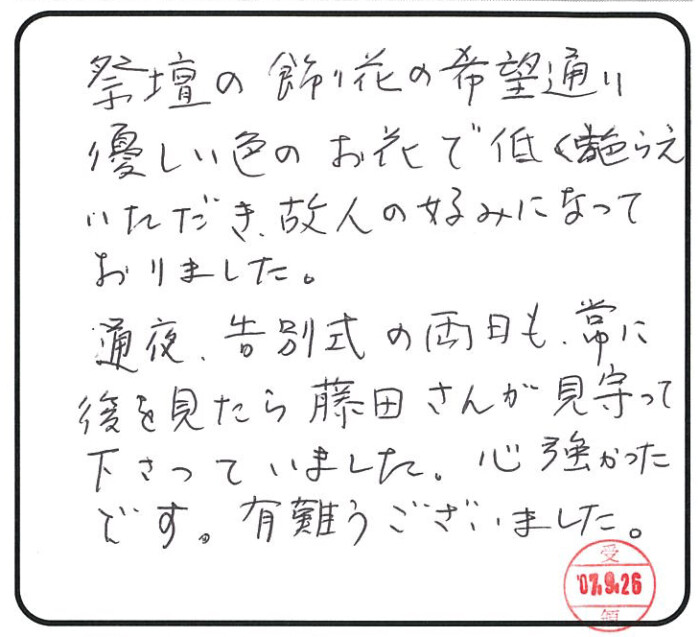 祭壇の飾り花の希望通り
優しい色のお花で低く艶らえ
いただき、故人の好みになって
おりました。
通夜、告別式の両日も、常に
後を見たら藤田さんが見守って
下さっていました。心強かった
です。有難うございました。
受
'07.9.26
領